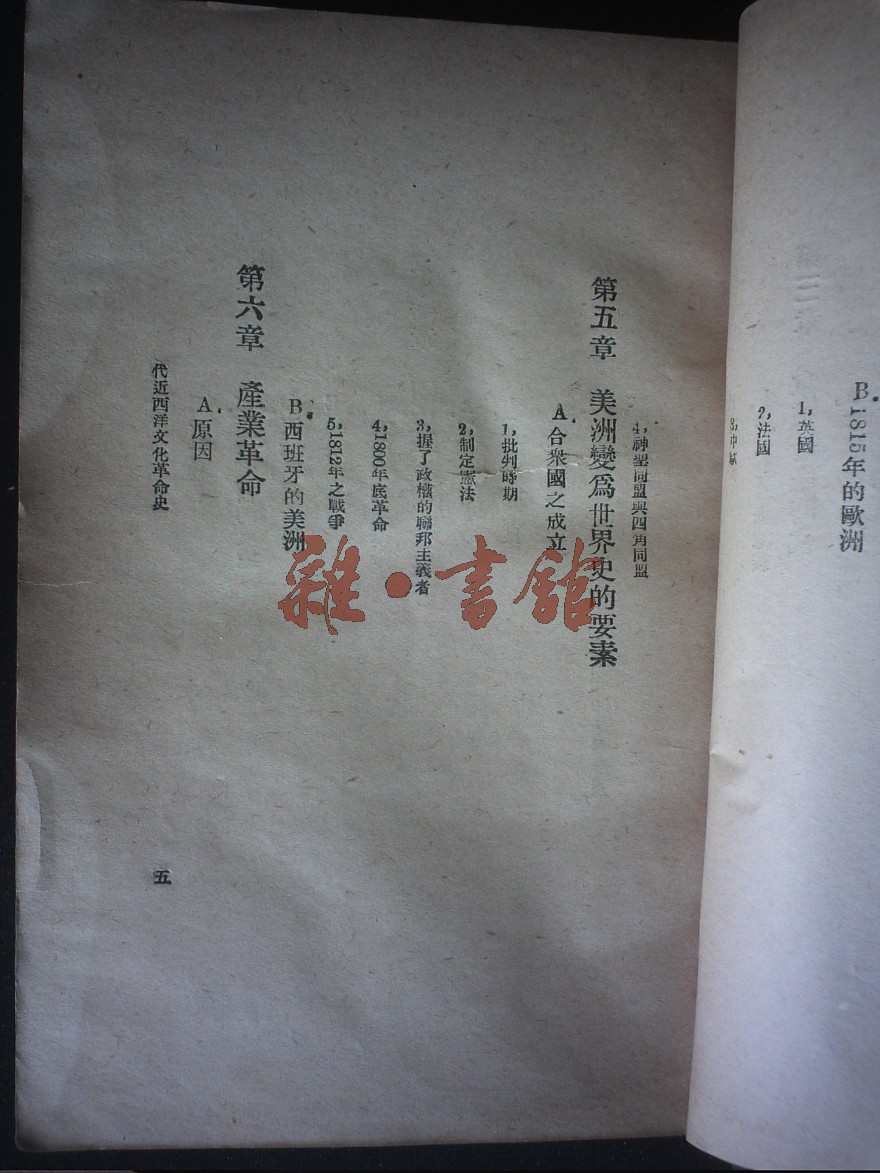 B. 1815年的歐洲
1, 英國
2, 法國
4, 神聖同盟與四角同盟
第五章 美洲變爲世界史的要素
A 合衆國之成立
1, 批判時期
2, 制定憲法
3, 握了政權的聯邦主義者
4, 1800年底革命
5, 1812年之戰爭
B. 西班牙的美洲
第六章 產業革命
A. 原因
代近西洋文化革命史
五
雜·書館